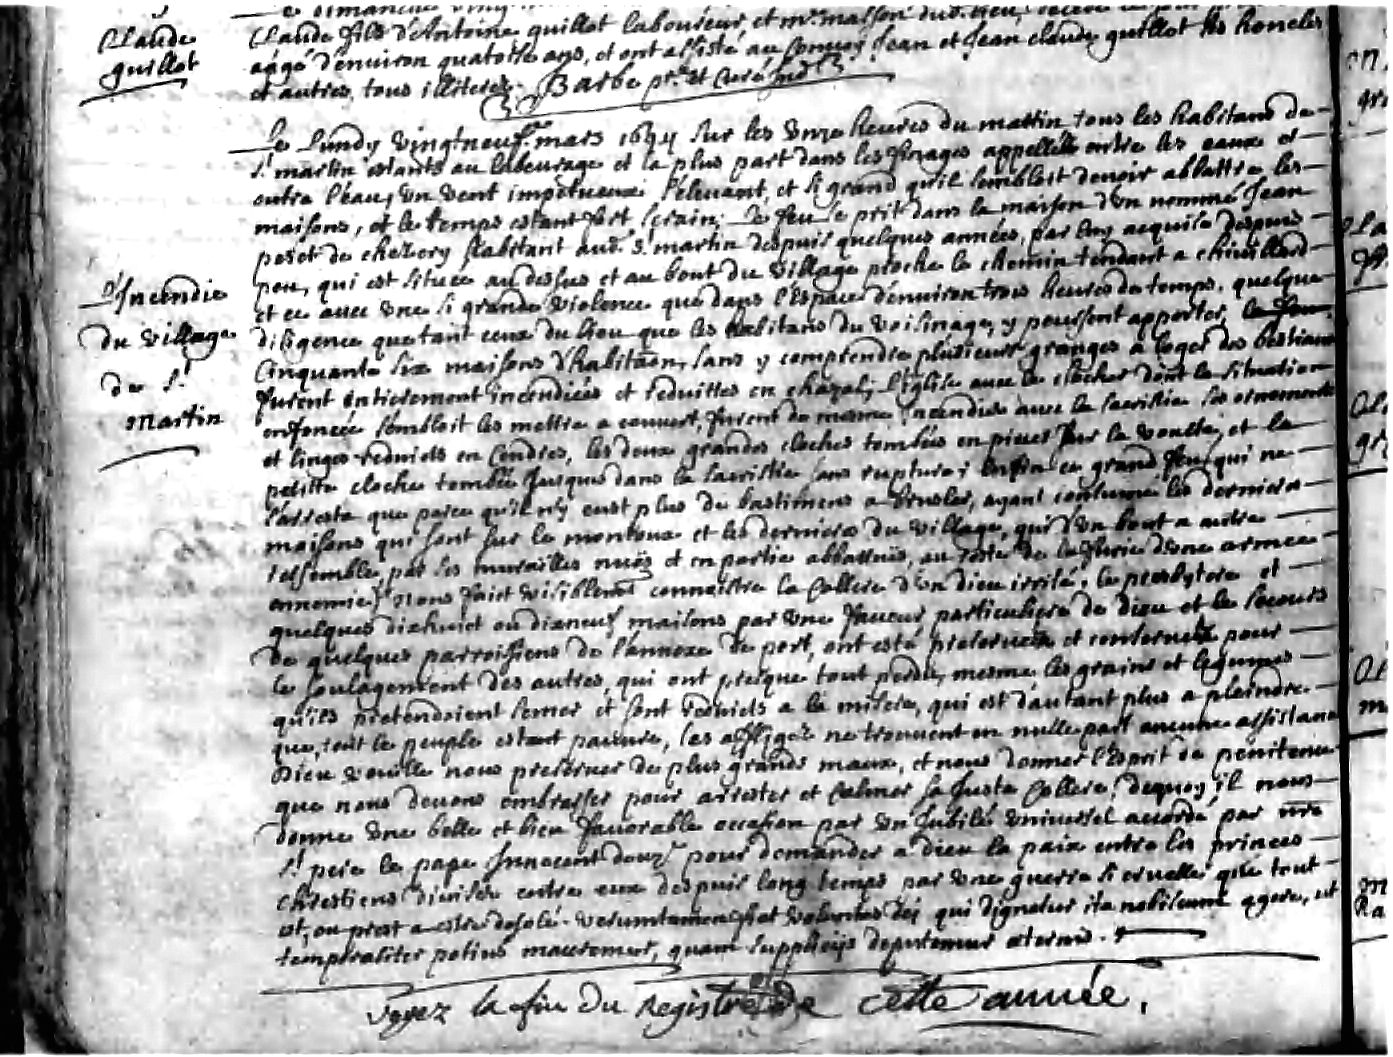 Claude
guillot
Le dimanche vingt
Claude fils d'Antoine guillot laboureur, et
aagé d'environ quatorze ans, et ont assisté au convoy Jean et Jean claude guillot ses oncles
et autres, tous illiterés. Barbe ptre et Curé
L'Incendie
du village
de St
Martin
Le Lundy vingtneufe mars 1694 sur les unze heures du mattin tous les habitans de
St martin estants au labourage et la plus part dans les finages appellés entre les eaux et
outre l'eau, un vent impetueux s'elevant, et si grand qu'il sembloit devoir abbattre les
maisons, et le temps estant fort serain; le feu se prit dans la maison d'un nommé Jean
poset de chezery habitant aud. St martin despuis quelques années, par luy acquise despuis
peu, qui est située au dessus et au bout du village proche le chemin tendant a chivillard
et ce avec une si grande violence que dans l'espace d'environ trois heures de temps, quelque
diligence que tant ceux du lieu que les habitans du voisinage, y peussent apporter,
Cinquante six maisons d'habitaôn, sans y comprendre plusieurs granges a loger des bestiaux
furent entierement incendiées et reduittes en chazal; l'église avec le clocher dont la situation
enfoncée sembloit les mettre a couvert, furent de mesme incendiés avec la sacristie les ornements
et linges reduicts en cendres, les deux grandes cloches tombées en pieces sur la voulte, et la
petitte cloche tombée jusques dans la sacristie sans rupture; enfin ce grand feu qui ne
s'arresta que parce qu'il n'y eust plus de bastimens a brusler, ayant consumé les dernieres
maisons qui sont sur le montoux et les dernieres du village, qui d'un bout a autre
ressemble par ses murailles nues et en partie abbattues, au reste de la furie d'une armée
ennemie, nous faict visiblemt connoistre la collere d'un dieu irrité. le presbytere et
quelques dixhuict ou dixneuf maisons par une faveur particuliere de dieu et le secours
de quelques parroissiens de l'annexe de port, ont esté preservées et conservées pour
le soulagement des autres, qui ont presque tout perdu, mesme les grains et legumes
qu'ils pretendoient semer et sont reduicts a la misere, qui est d'autant plus a plaindre
que tout le peuple estant pauvre, les affligez ne trouvent en nulle part aucune assistance
Dieu veuille nous preserver de plus grands maux, et nous donner l'esprit de penitence
que nous devons embrasser pour arrester et calmer sa juste collere; dequoy il nous
donne une belle et bien favorable occasion par un Jubilé universel accordé par nre
St pere le pape Innocent douze pour demander a dieu la paix entre les princes
chrestiens divisés entre eux despuis long temps par une guerre si cruelle, que tout
est, ou prest a estre desolé. verumtamen fiat voluntas dei qui dignetur ita nobiscum agere, ut
temporaliter potius maceremur, quam supplicijs deputemur æternis.
voyez la fin du Registre de cette année.